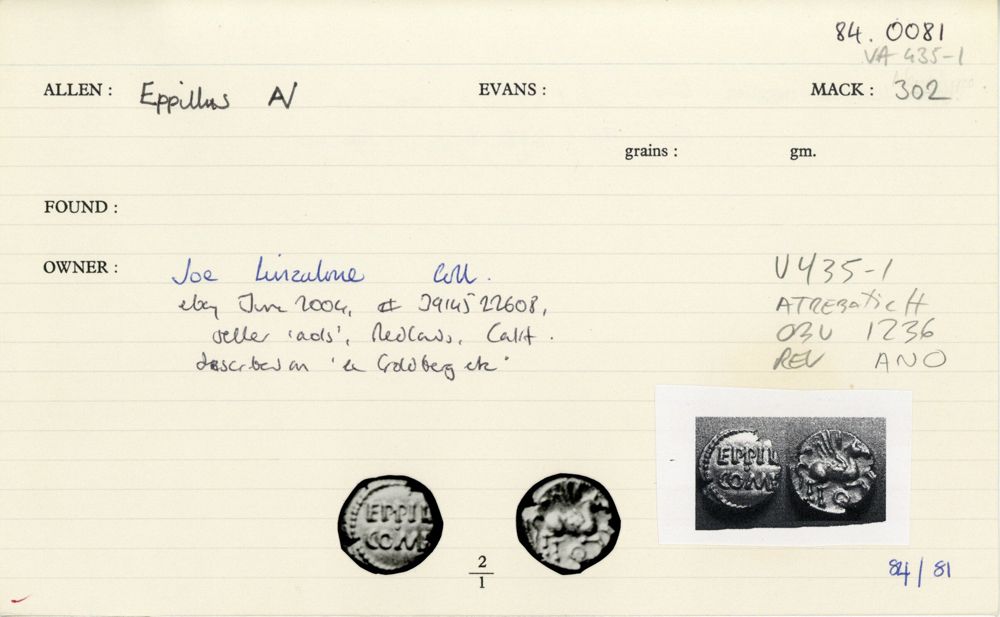 84. 0081
VA 435-1
ALLEN : Eppillus AV EVANS : MACK : 302
grains : gm.
FOUND :
OWNER : Joe Linzalone Coll.
ebay June 2004, # 3914522608,
seller 'aols', Redlands, Calif.
described as 'ex Goldberg etc'
V435-1
ATREBATIC H
OBV 1236
REV ANO
EPPIL
COMF
EPPIL
COMF
2
1
84/81